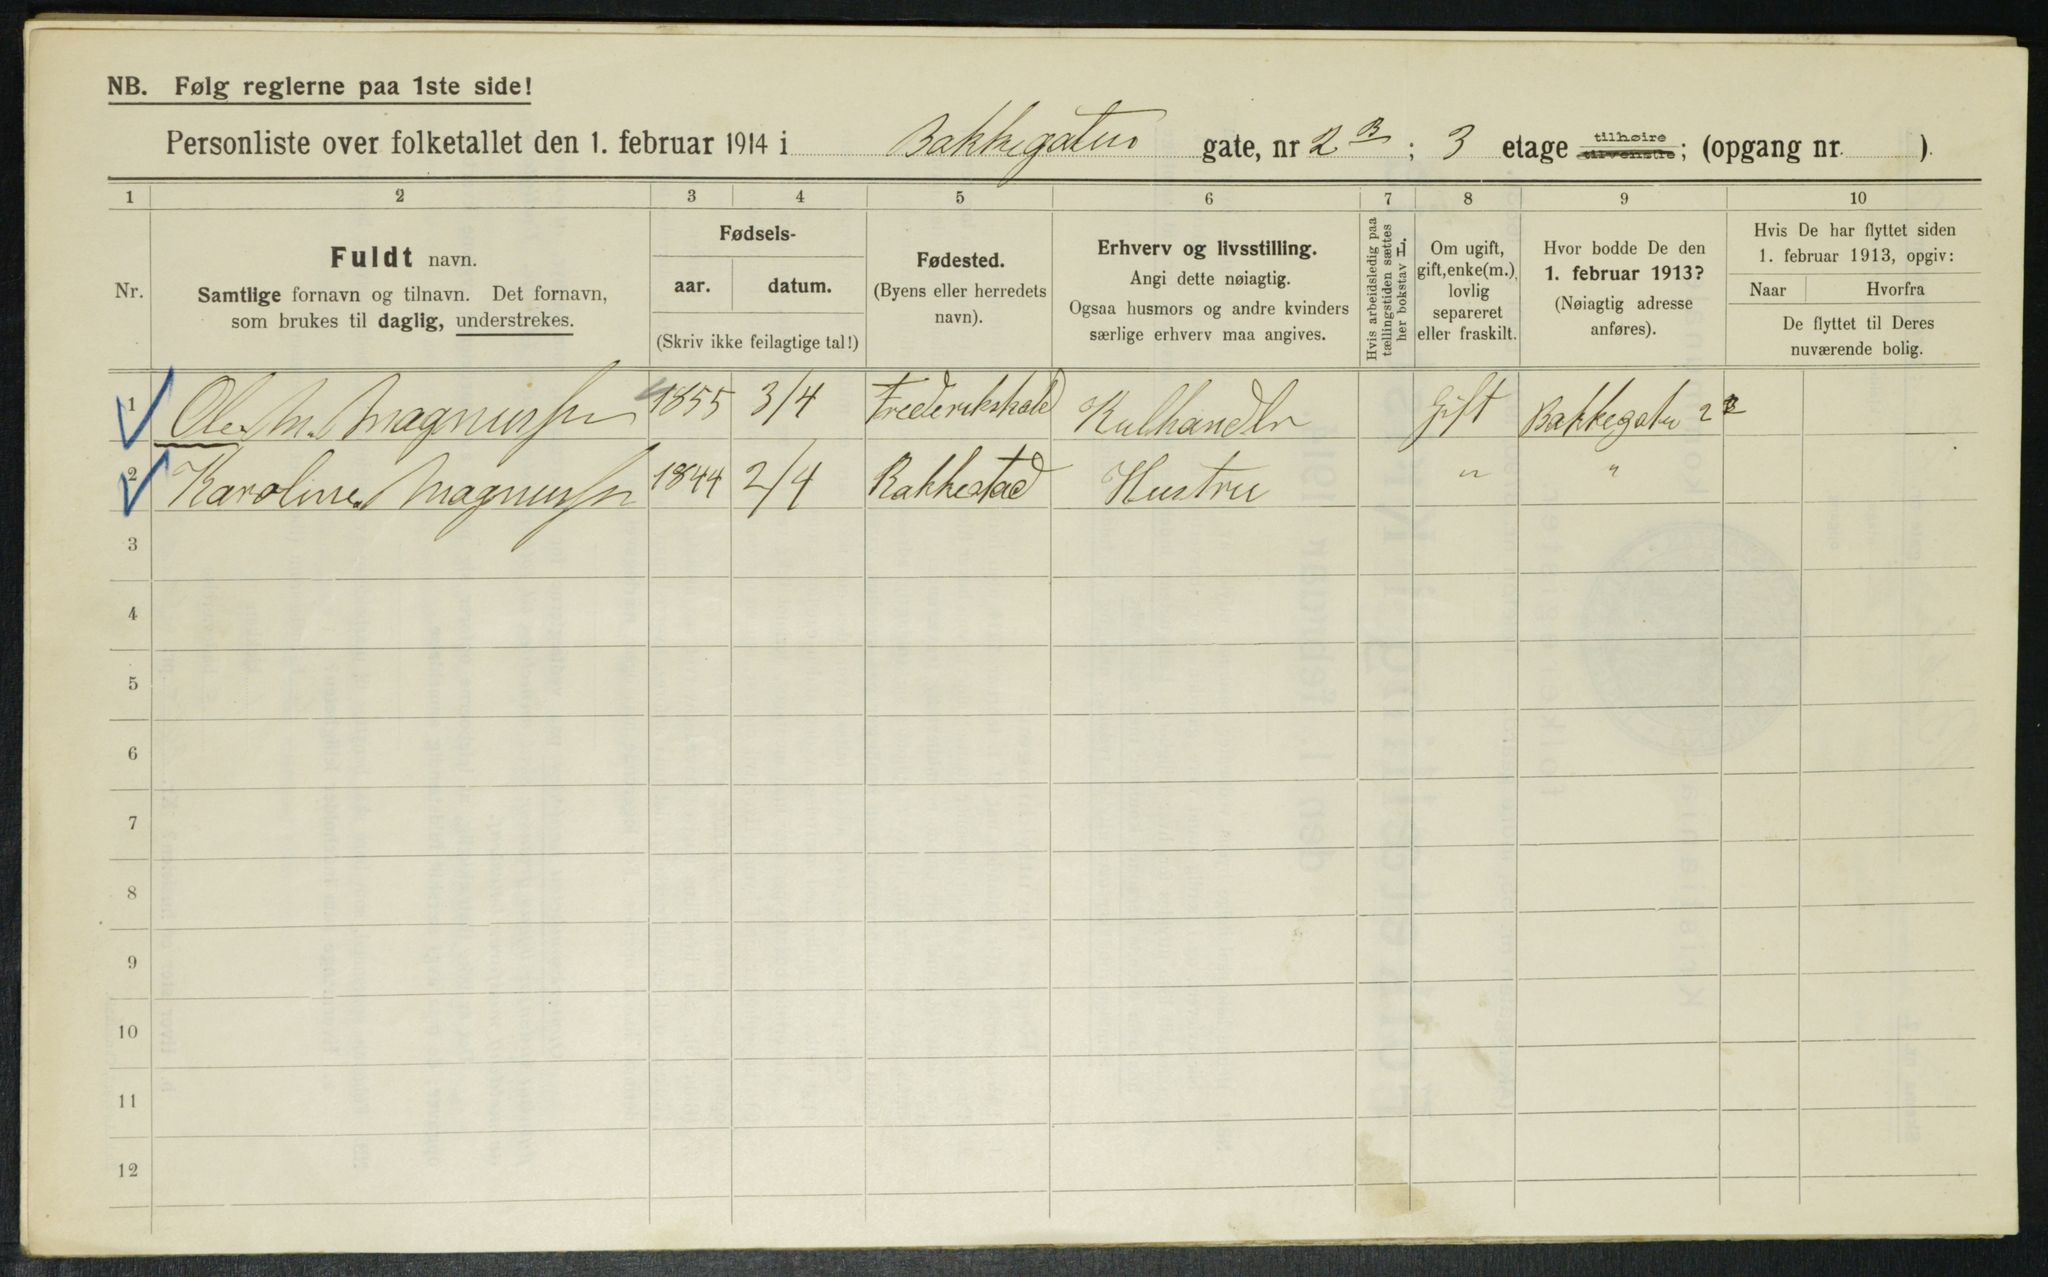 NB. Følg reglerne paa 1ste side!
Personliste over folketallet den 1. februar 1914 i Bakkegaten gate, nr 2 B ; 3 etage tilhøire tilvenstre; (opgang nr. ).
1 2 3 4 5 6 7 8 9 10
Nr.
Fuldt navn.
Samtlige fornavn og tilnavn. Det fornavn,
som brukes til daglig, understrekes.
Fødsels-
aar. datum.
(Skriv ikke feilagtige tal!)
Fødested.
(Byens eller herredets
navn).
Erhverv og livsstilling.
Angi dette nøiagtig.
Ogsaa husmors og andre kvinders
særlige erhverv maa angives.
Hvis arbeidsledig paa
tællingstiden sættes
her bokstav L.
Om ugift,
gift, enke(m.),
lovlig
separeret
eller fraskilt.
Hvor bodde De den
1. februar 1913?
(Nøiagtig adresse
anføres).
Hvis De har flyttet siden
1. februar 1913, opgiv:
Naar Hvorfra
De flyttet til Deres
nuværende bolig.
1 Ole M. Magnussen 1855 3/4 Frederikshald Kulhandler Gift Bakkegaten 2 B
2 Karoline Magnussen 1844 2/4 Rakkestad Hustru " "
3
4
5
6
7
8
9
10
11
12